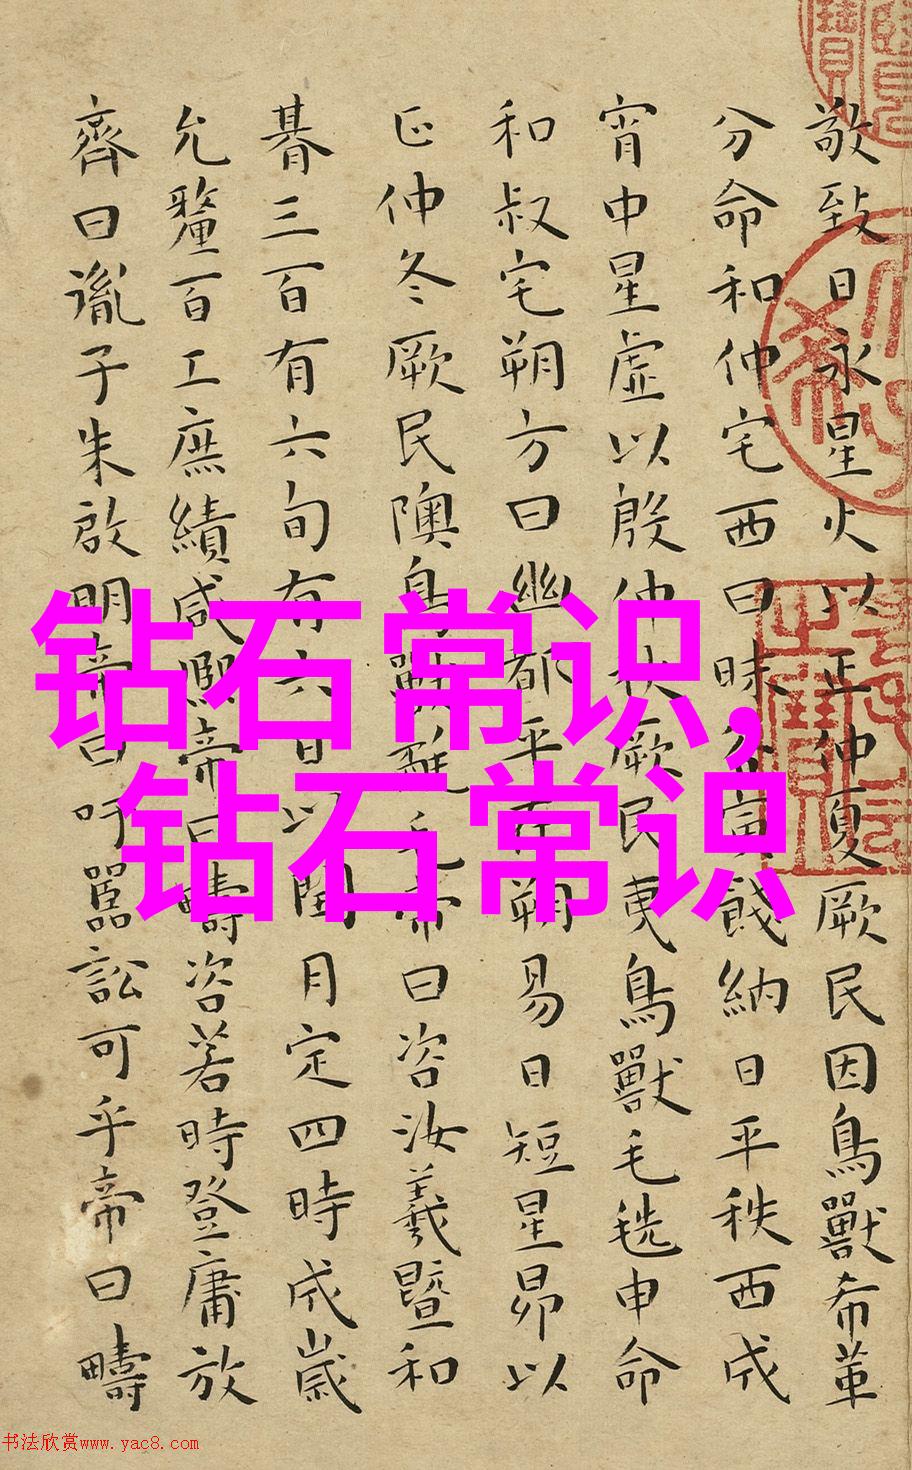 敬致日永星火以正仲夏厥民因鳥獸希革
分命和仲宅西曰昧谷寅餞納日平秩西成
宵中星虛以殷仲秋厥民夷鳥獸毛毨申命
和叔宅朔方曰幽都平在朔易日短星昴以
正仲冬厥民隩鳥獸氄毛帝曰咨汝羲暨和
朞三百有六旬有六日以閏月定四時成歲
允釐百工庶績咸熙帝曰疇咨若時登庸放
齊曰胤子朱啟明帝曰吁嚚訟可乎帝曰疇
钻石常识,
钻石常识
书法欣赏www.yac8.com